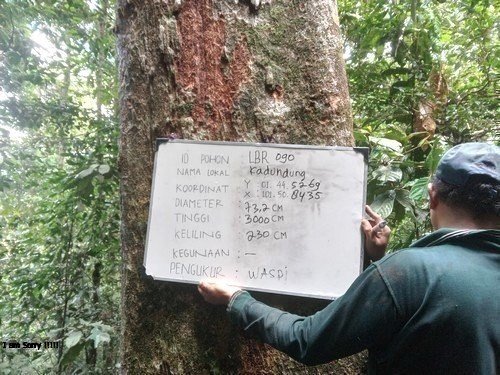 ID POHON : LBR 090
NAMA LOKAL : Kadundung
KOORDINAT : Y 01.44.5269
X : 101.50.8435
DIAMETER : 73,2 CM
TINGGI : 3000 CM
KELILING : 230 CM
KEGUNAAN : –
PENGUKUR : WASPI
I am Sorry !!!!!